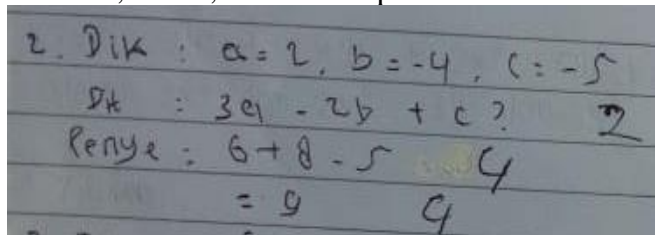 2. Dik : a = 2, b = -4, c = -5
Dit : 3a - 2b + c? 2
Penye : 6 + 8 - 5 4
= 9 4